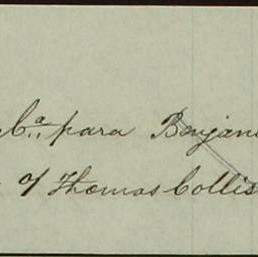 Cª para Benjam
of Thomas Collis